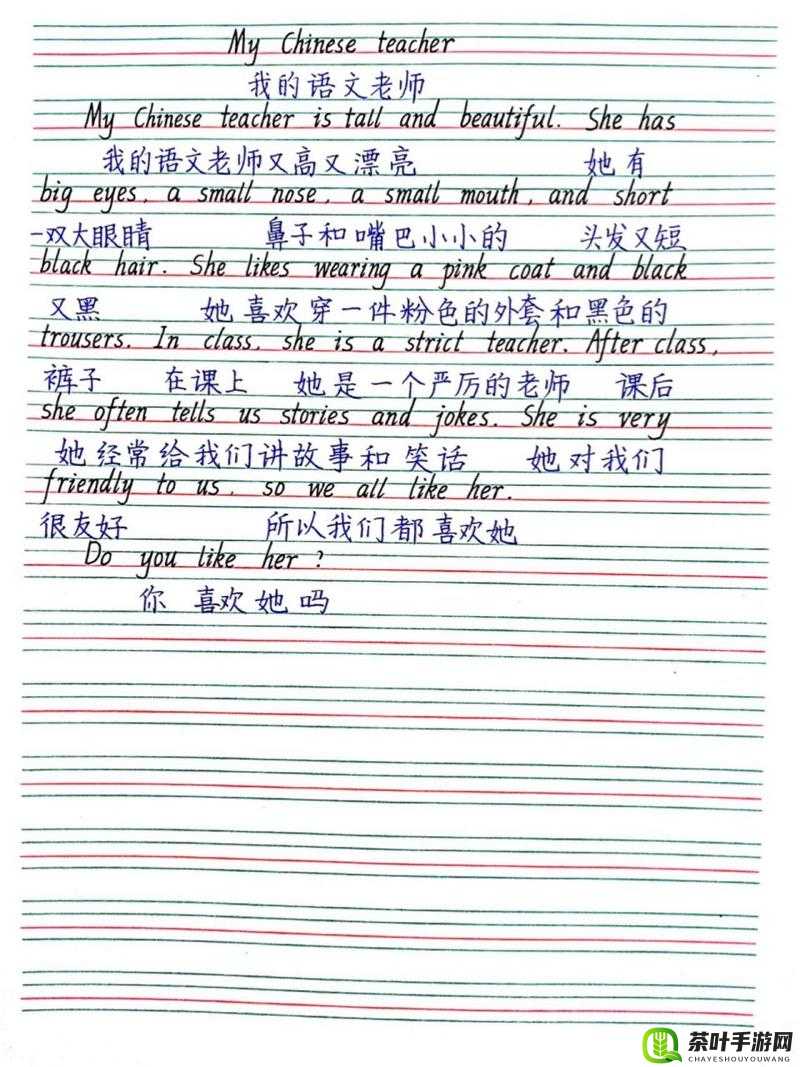 My Chinese teacher
我的语文老师
My Chinese teacher is tall and beautiful. She has
我的语文老师又高又漂亮 她有
big eyes, a small nose, a small mouth, and short
一双大眼睛 鼻子和嘴巴小小的 头发又短
black hair. She likes wearing a pink coat and black
又黑 她喜欢穿一件粉色的外套和黑色的
trousers. In class, she is a strict teacher. After class,
裤子 在课上 她是一个严厉的老师 课后
she often tells us stories and jokes. She is very
她经常给我们讲故事和笑话 她对我们
friendly to us, so we all like her.
很友好 所以我们都喜欢她
Do you like her?
你喜欢她吗
茶叶手游网
CHAYESHOUYOUWANG